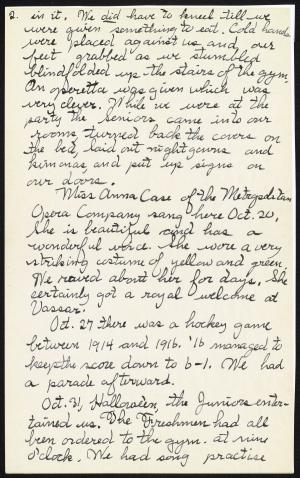 2. in it. We did have to kneel till we
were given something to eat. Cold hands
were placed against us and our
feet grabbed as we stumbled
blindfolded up the stairs of the gym.
An operetta was given which was
very clever. While we were at the
party the Seniors came into our
rooms, turned back the covers on
the bed, laid out nightgowns and
kimonas and put up signs on
our doors.
Miss Anna Case of the Metropolitan
Opera Company sang here Oct. 20.
She is beautiful and has a
wonderful voice. She wore a very
striking costume of yellow and green.
We raved about her for days. She
certainly got a royal welcome at
Vassar.
Oct. 27 there was a hockey game
between 1914 and 1916. '16 managed to
keep the score down to 6-1. We had
a parade afterward.
Oct. 31, Halloween, the Juniors enter-
tained us. The Freshmen had all
been ordered to the gym. at nine
o'clock. We had song practise